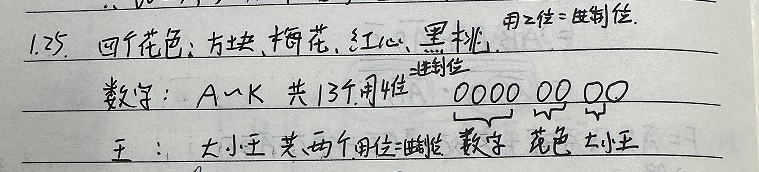 1.25. 四个花色：方块、梅花、红心、黑桃 用2位二进制位.
数字： A~K 共13个,用4位二进制位 0000 00 00
王： 大小王 共两个,用位二进制位 数字 花色 大小王